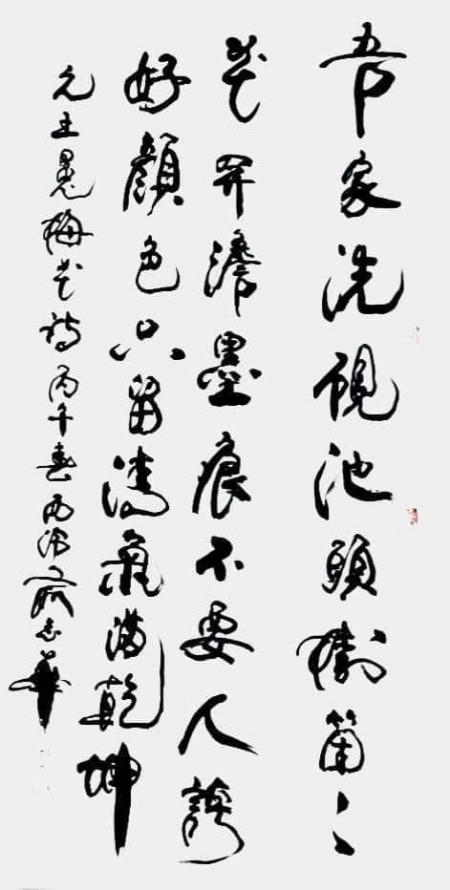 吾家洗硯池頭樹箇々
花開澹墨痕不要人誇
好顏色只留清氣滿乾坤
元王冕梅花詩丙午春志華